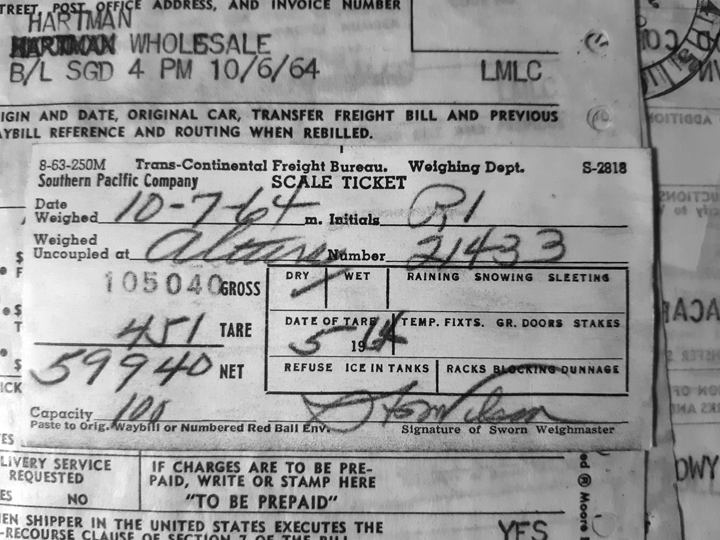 STREET, POST OFFICE ADDRESS, AND INVOICE NUMBER
HARTMAN
HARTMAN WHOLESALE
B/L SGD 4 PM 10/6/64
LMLC
IGIN AND DATE, ORIGINAL CAR, TRANSFER FREIGHT BILL AND PREVIOUS
AYBILL REFERENCE AND ROUTING WHEN REBILLED.
8-63-250M Trans-Continental Freight Bureau. Weighing Dept. S-2818
Southern Pacific Company SCALE TICKET
Date Weighed 10-7-64 m. Initials
Weighed Uncoupled at Number 21433
105040 GROSS
DRY WET RAINING SNOWING SLEETING
451 TARE
DATE OF TARE TEMP. FIXTS. GR. DOORS STAKES
5 19
59940 NET
REFUSE ICE IN TANKS RACKS BLOCKING DUNNAGE
Capacity 100
Paste to Orig. Waybill or Numbered Red Ball Env. Signature of Sworn Weighmaster
LIVERY SERVICE
REQUESTED
ES NO
IF CHARGES ARE TO BE PRE-
PAID, WRITE OR STAMP HERE
"TO BE PREPAID"
EN SHIPPER IN THE UNITED STATES EXECUTES THE
-RECOURSE CLAUSE OF SECTION 7 OF THE BILL
YES